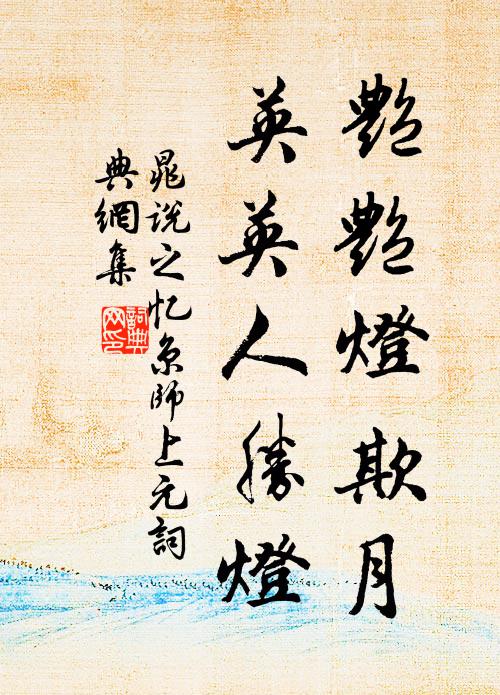 艷艷燈欺月
英英人勝燈
晁說之忆京師上元詞
典網集
詞典网印